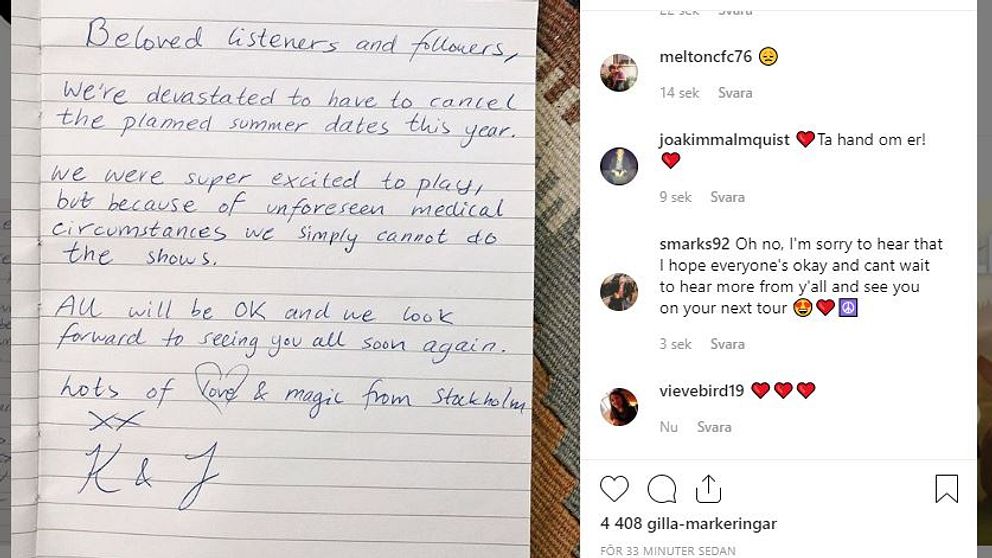 Beloved listeners and followers,
We're devastated to have to cancel
the planned summer dates this year.
We were super excited to play,
but because of unforeseen medical
circumstances we simply cannot do
the shows.
All will be OK and we look
forward to seeing you all soon again.
Lots of love & magic from Stockholm
XX
K & J
22 sek Svara
meltoncfc76 😞
14 sek Svara
joakimmalmquist ❤️Ta hand om er!
❤️
9 sek Svara
smarks92 Oh no, I'm sorry to hear that
I hope everyone's okay and cant wait
to hear more from y'all and see you
on your next tour 😍❤️☮️
3 sek Svara
vievebird19 ❤️❤️❤️
Nu Svara
4 408 gilla-markeringar
FÖR 33 MINUTER SEDAN